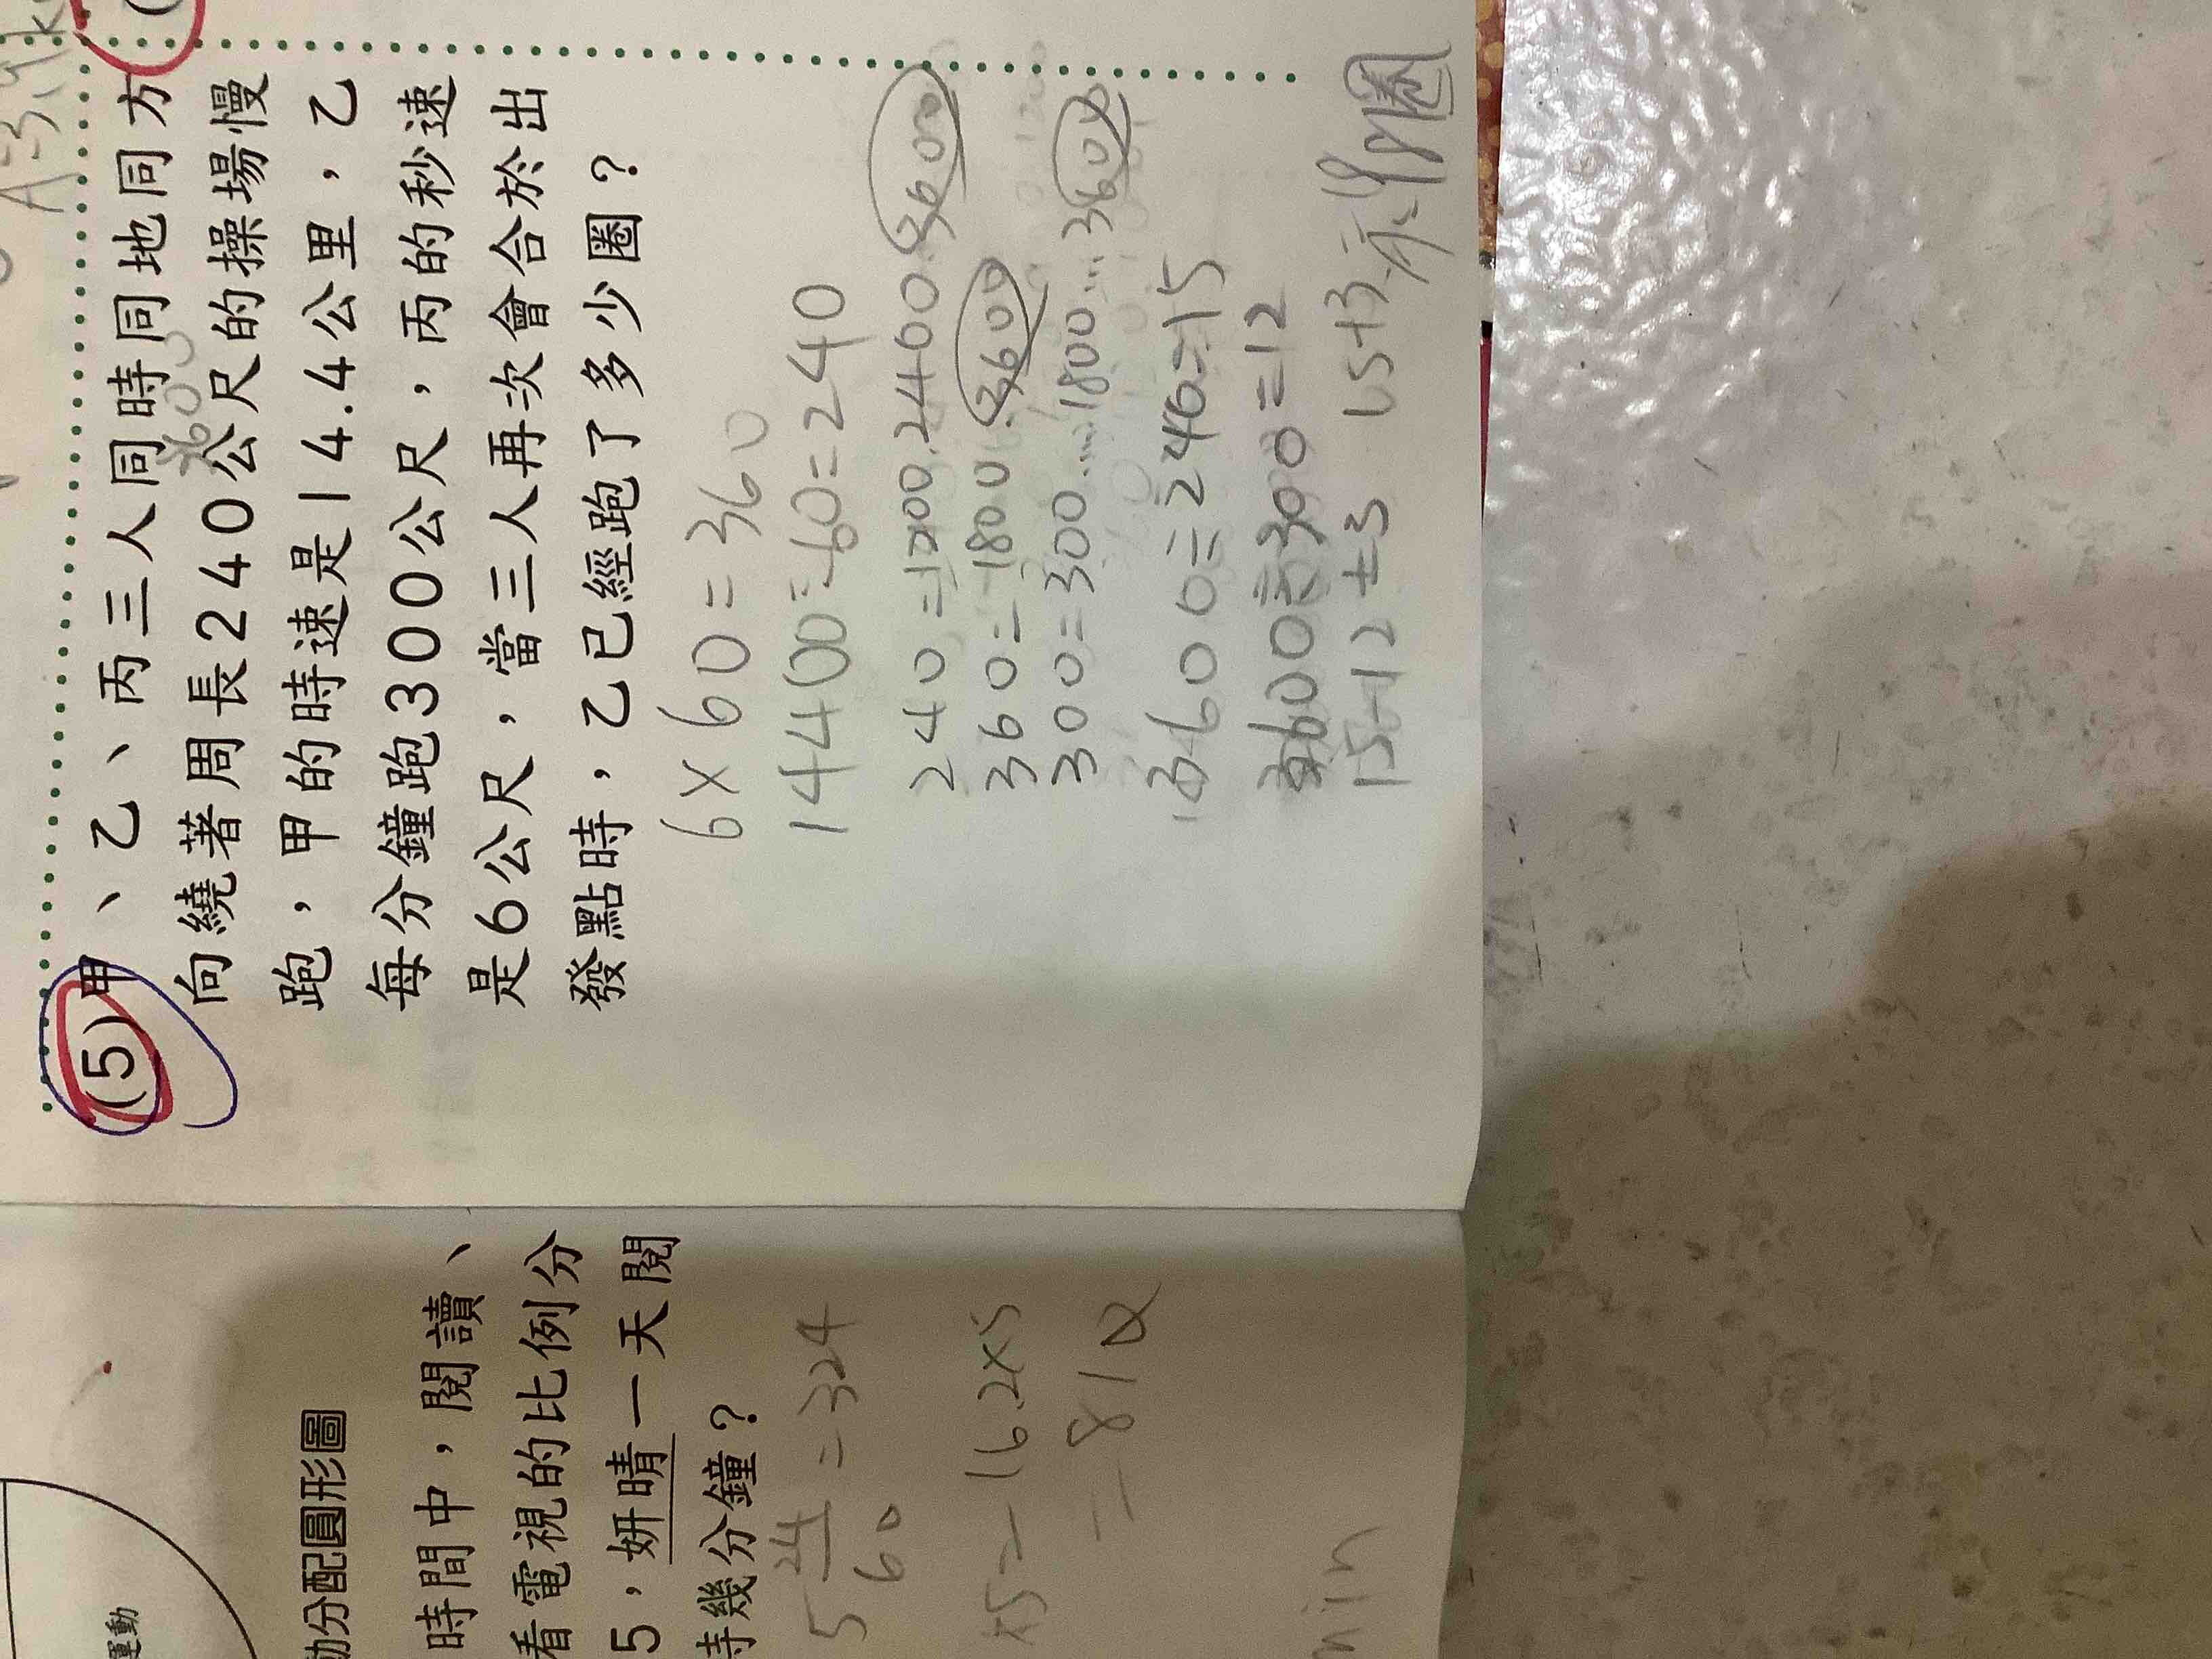 (5)甲、乙、丙三人同時同地同方
向繞著周長240公尺的操場慢
跑，甲的時速是14.4公里，乙
每分鐘跑300公尺，丙的秒速
是6公尺，當三人再次會合於出
發點時，乙已經跑了多少圈？
6×60=360
14400÷60=240
240=1200.2400.3600
360=1800.3600
300=300....1800...3600
3600÷240=15
3600÷300=12
15-12=3
圈
運動
動分配圓形圖
時間中，閱讀、
看電視的比例分
5，妍晴一天閱
時幾分鐘？
5 24/60 =324
×5=16.2×5
=81
min